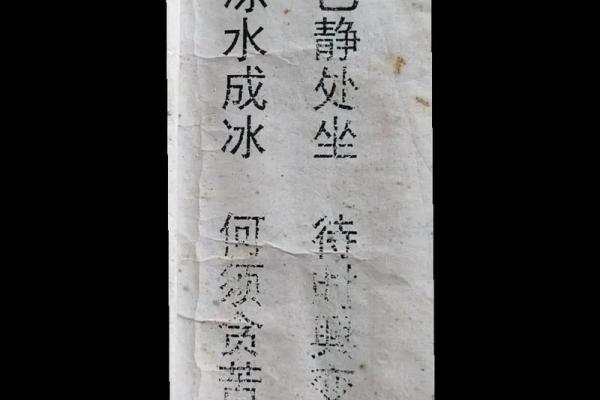 静处坐 待时興变
水成冰 何须贪